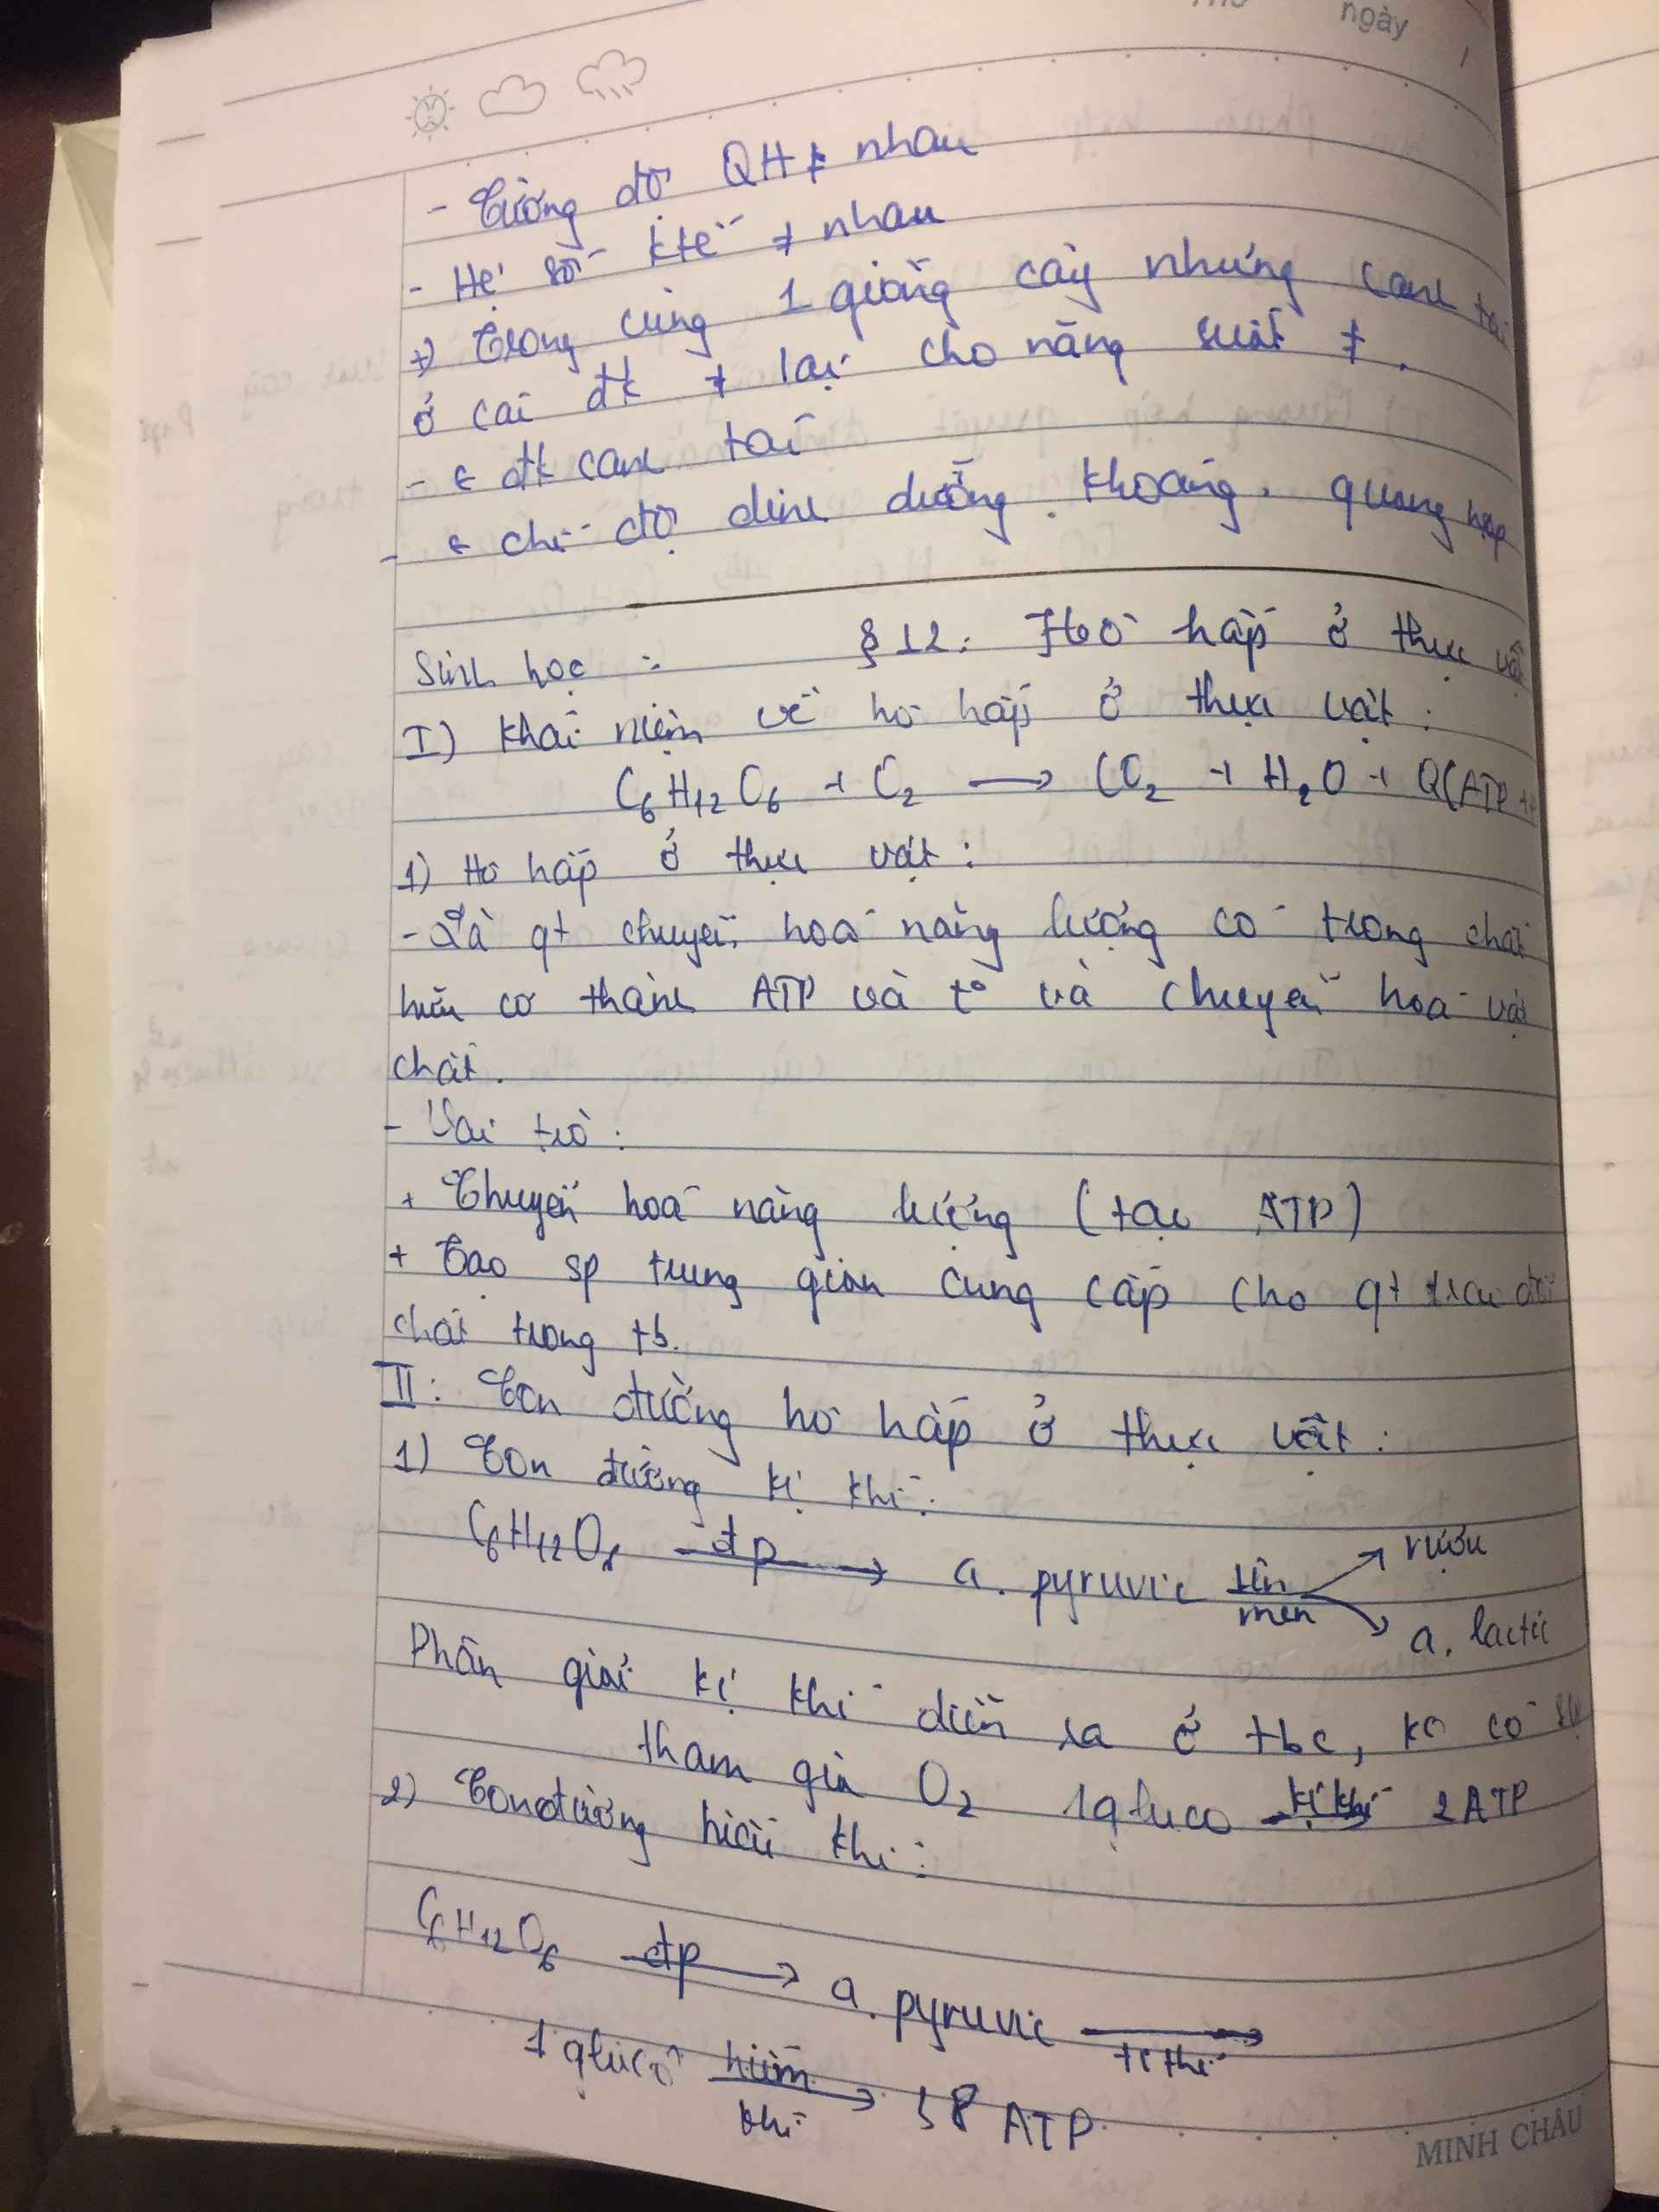 ngày
- Cường độ QH ≠ nhau
- Hệ số ktế ≠ nhau
+) Trong cùng 1 giống cây nhưng canh tác
ở các đk ≠ lại cho năng suất ≠.
- ← đk canh tác
- ← chế độ dinh dưỡng khoáng, quang hợp
Sinh học : § 12: Hô hấp ở thực vật
I) Khái niệm về hô hấp ở thực vật:
C6H12O6 + O2 → CO2 + H2O + Q(ATP +
1) Hô hấp ở thực vật:
- Là qt chuyển hoá năng lượng có trong chất
hữu cơ thành ATP và t° và chuyển hoá vật
chất.
- Vai trò:
+ Chuyển hoá năng lượng (tạo ATP)
+ Tạo sp trung gian cung cấp cho qt trao đổi
chất trong tb.
II: Con đường hô hấp ở thực vật:
1) Con đường kị khí:
C6H12O6 —đp→ a. pyruvic lên men → rượu
→ a. lactic
Phân giải kị khí diễn ra ở tbc, ko có sự
tham gia O2 1gluco kị khí → 2ATP
2) Con đường hiếu khí:
C6H12O6 —đp→ a. pyruvic → ti thể
1 glucô hiếu khí → 38 ATP
MINH CHÂU